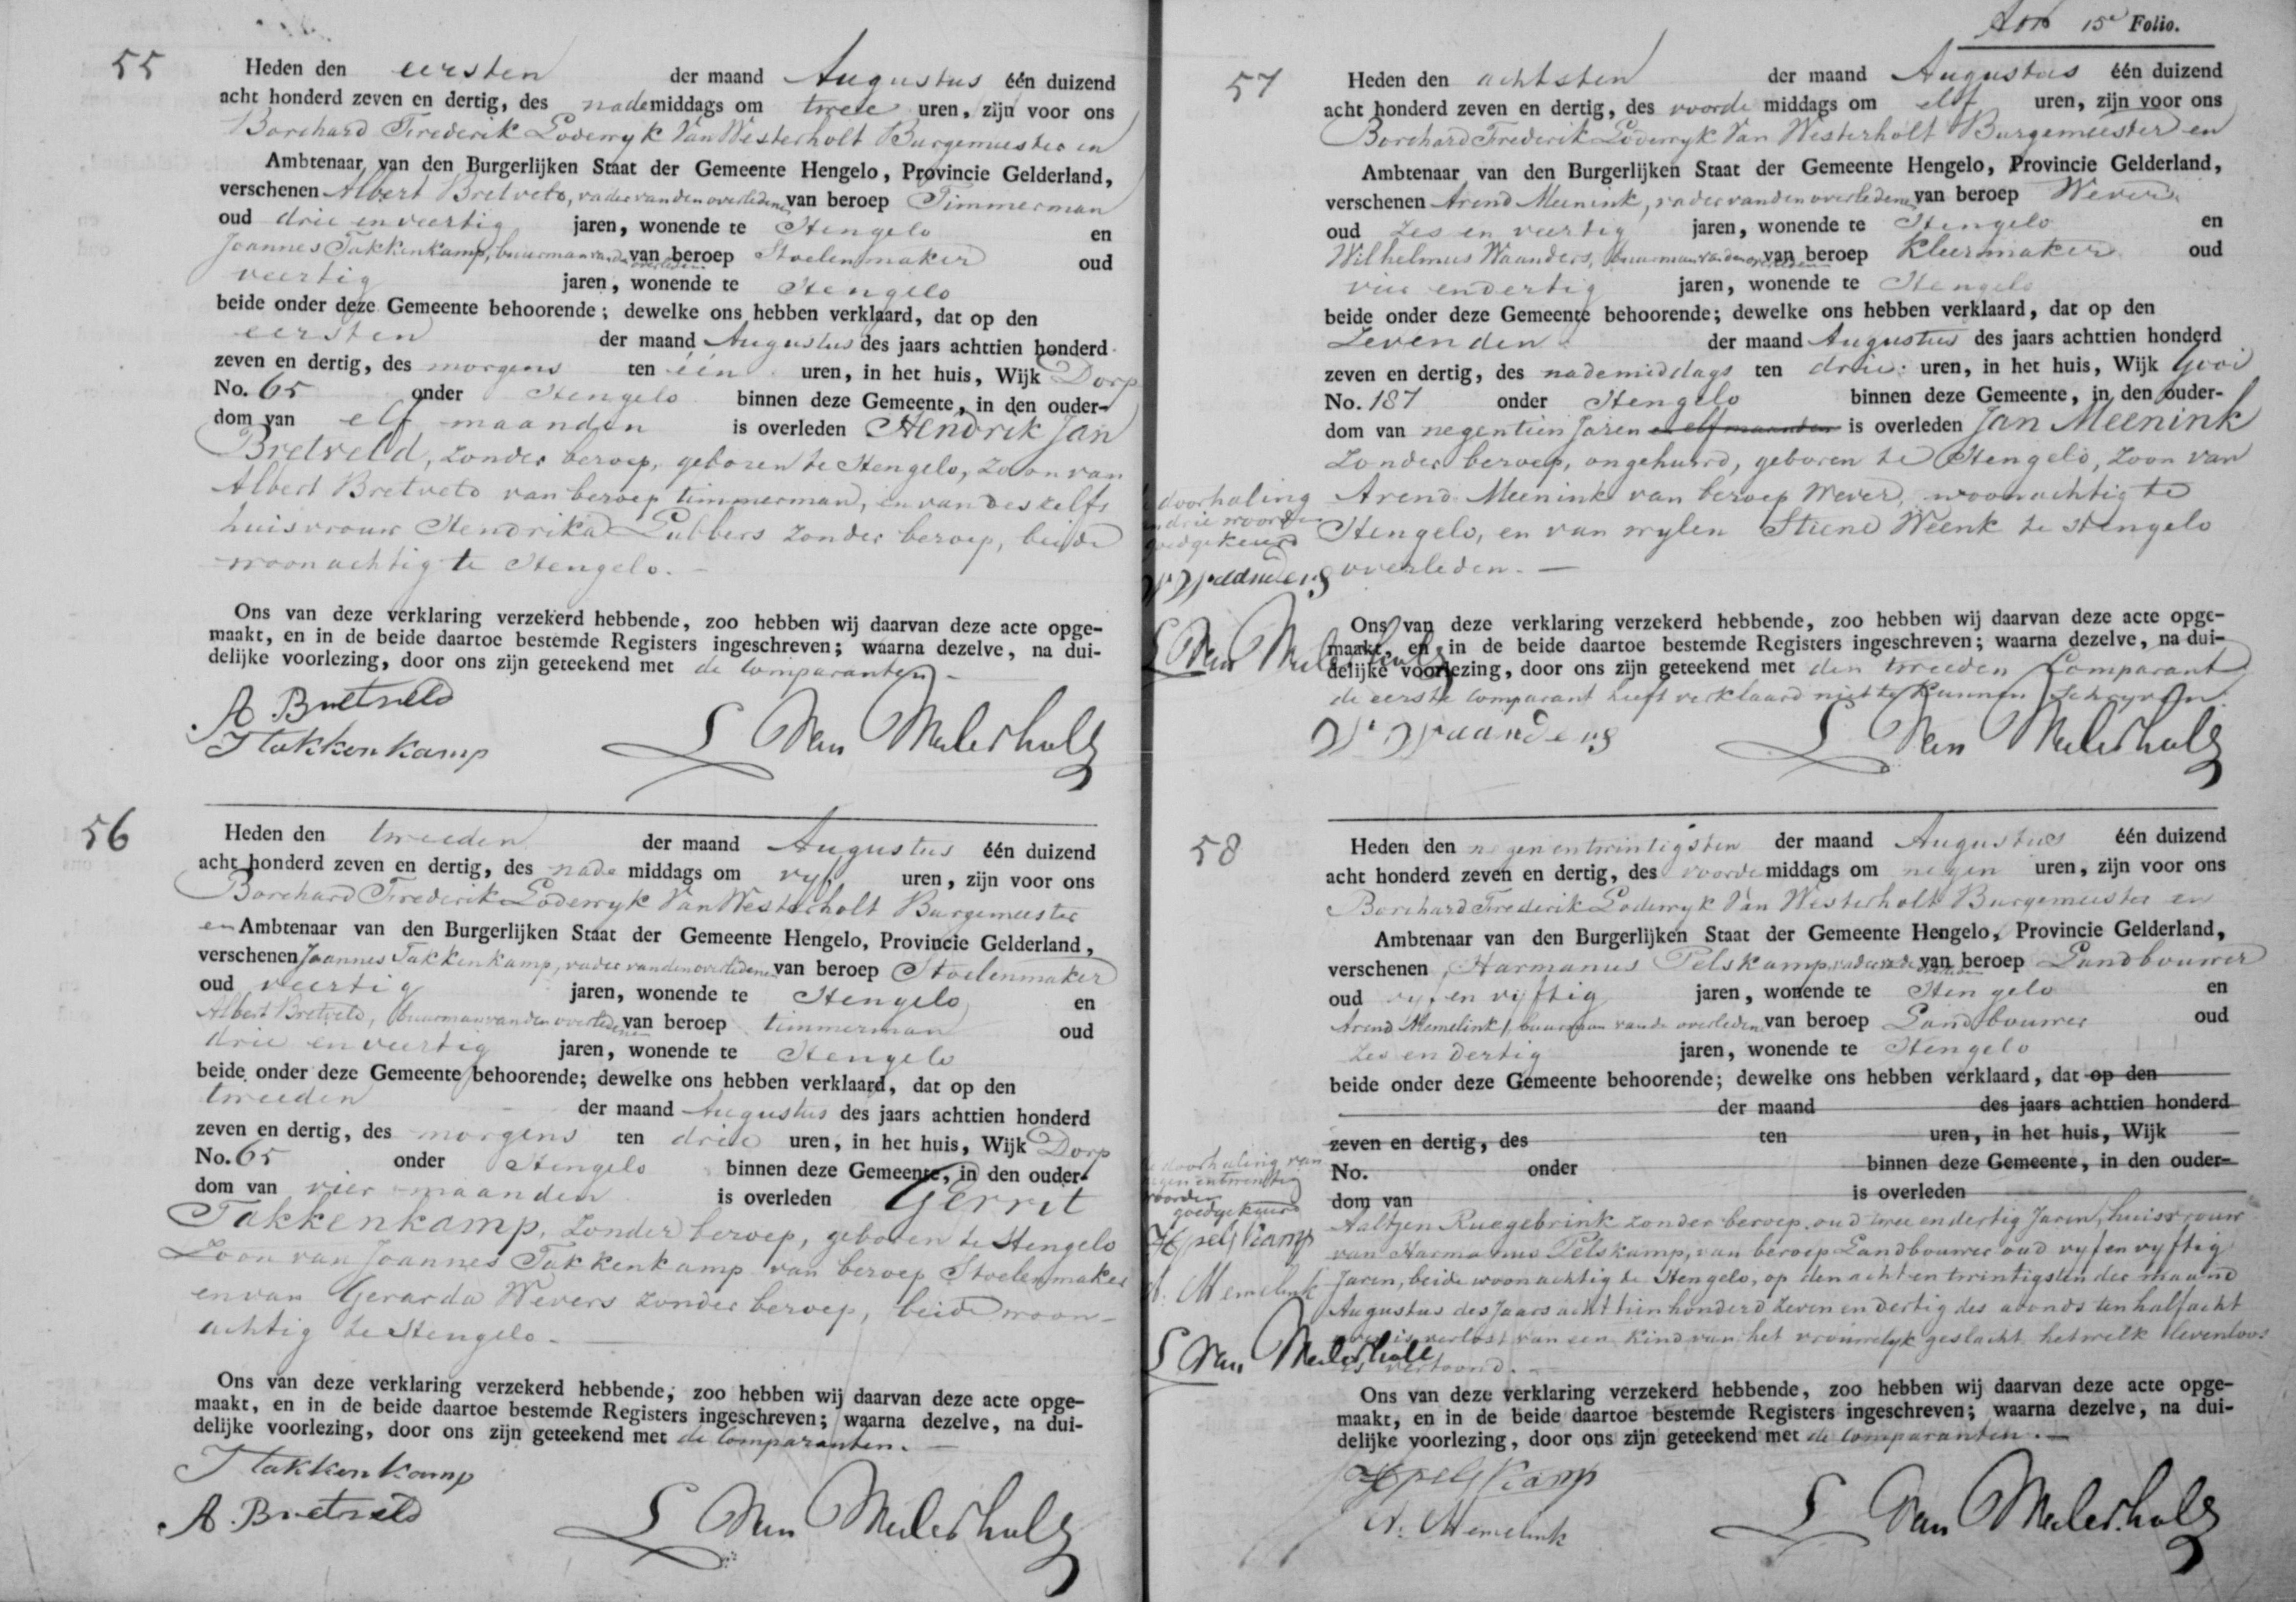 55
Heden den eersten der maand Augustus één duizend
acht honderd zeven en dertig, des nademiddags om twee uren, zijn voor ons
Borchard Frederik Lodewyk Van Westerholt Burgemeester en
Ambtenaar van den Burgerlijken Staat der Gemeente Hengelo, Provincie Gelderland,
verschenen Albert Bretveld, vader van den overledenen van beroep Timmerman
oud drie en veertig jaren, wonende te Hengelo en
Joannes Takkenkamp, buurman van den overleden van beroep Stoelenmaker oud
veertig jaren, wonende te Hengelo
beide onder deze Gemeente behoorende; dewelke ons hebben verklaard, dat op den
eersten der maand Augustus des jaars achttien honderd
zeven en dertig, des morgens ten één uren, in het huis, Wijk Dorp
No. 65 onder Hengelo binnen deze Gemeente, in den ouder-
dom van elf maanden is overleden Hendrik Jan
Bretveld, zonder beroep, geboren te Hengelo, zoon van
Albert Bretveld van beroep timmerman, en van deszelfs
huisvrouw Hendrika Lubbers zonder beroep, beide
woonachtig te Hengelo.
Ons van deze verklaring verzekerd hebbende, zoo hebben wij daarvan deze acte opge-
maakt, en in de beide daartoe bestemde Registers ingeschreven; waarna dezelve, na dui-
delijke voorlezing, door ons zijn geteekend met de Comparanten.
A Bretveld
J takkenkamp
L Van Westerholt
56
Heden den tweeden der maand Augustus één duizend
acht honderd zeven en dertig, des nade middags om vyf uren, zijn voor ons
Borchard Frederik Lodewyk Van Westerholt Burgemeester
en Ambtenaar van den Burgerlijken Staat der Gemeente Hengelo, Provincie Gelderland,
verschenen Joannes Takkenkamp, vader van den overledenen van beroep Stoelenmaker
oud veertig jaren, wonende te Hengelo en
Albert Bretveld, buurman van den overledenen van beroep timmerman oud
drie en veertig jaren, wonende te Hengelo
beide onder deze Gemeente behoorende; dewelke ons hebben verklaard, dat op den
tweeden der maand Augustus des jaars achttien honderd
zeven en dertig, des morgens ten drie uren, in het huis, Wijk Dorp
No. 65 onder Hengelo binnen deze Gemeente, in den ouder-
dom van vier maanden is overleden Gerrit
Takkenkamp, zonder beroep, geboren te Hengelo
Zoon van Joannes Takkenkamp van beroep Stoelenmaker
en van Gerarda Wevers zonder beroep, beide woon-
achtig te Hengelo.
Ons van deze verklaring verzekerd hebbende, zoo hebben wij daarvan deze acte opge-
maakt, en in de beide daartoe bestemde Registers ingeschreven; waarna dezelve, na dui-
delijke voorlezing, door ons zijn geteekend met de Comparanten.
J takkenkamp
A. Bretveld
L Van Westerholt
15e Folio.
57
Heden den achtsten der maand Augustus één duizend
acht honderd zeven en dertig, des voorde middags om elf uren, zijn voor ons
Borchard Frederik Lodewyk Van Westerholt Burgemeester en
Ambtenaar van den Burgerlijken Staat der Gemeente Hengelo, Provincie Gelderland,
verschenen Arend Meenink, vader van den overledenen van beroep Wever
oud zes en veertig jaren, wonende te Hengelo en
Wilhelmus Waanders, buurman van den overleden van beroep Kleermaker oud
vier en dertig jaren, wonende te Hengelo
beide onder deze Gemeente behoorende; dewelke ons hebben verklaard, dat op den
Zevenden der maand Augustus des jaars achttien honderd
zeven en dertig, des nademiddags ten drie uren, in het huis, Wijk Gooi
No. 187 onder Hengelo binnen deze Gemeente, in den ouder-
dom van negentien Jaren en elf maanden is overleden Jan Meenink
zonder beroep, ongehuwd, geboren te Hengelo, zoon van
Arend Meenink van beroep Wever, woonachtig te
Hengelo, en van wylen Stiene Weenk te Hengelo
overleden.
doorhaling
drie woorden
goedgekeurd
W Waanders
L Van Westerholt
Ons van deze verklaring verzekerd hebbende, zoo hebben wij daarvan deze acte opge-
maakt, en in de beide daartoe bestemde Registers ingeschreven; waarna dezelve, na dui-
delijke voorlezing, door ons zijn geteekend met den tweeden Comparant
de eerste Comparant heeft verklaard niet te kunnen schryven.
W Waanders
L Van Westerholt
58
Heden den negen en twintigsten der maand Augustus één duizend
acht honderd zeven en dertig, des voorde middags om negen uren, zijn voor ons
Borchard Frederik Lodewyk Van Westerholt Burgemeester en
Ambtenaar van den Burgerlijken Staat der Gemeente Hengelo, Provincie Gelderland,
verschenen Harmanus Pelskamp van beroep Landbouwer
oud vyf en vyftig jaren, wonende te Hengelo en
Arend Memelink, buurman van de overledene van beroep Landbouwer oud
zes en dertig jaren, wonende te Hengelo
beide onder deze Gemeente behoorende; dewelke ons hebben verklaard, dat op den
der maand des jaars achttien honderd
zeven en dertig, des ten uren, in het huis, Wijk
No. onder binnen deze Gemeente, in den ouder-
dom van is overleden
Aaltjen Ruegebrink zonder beroep, oud twee en dertig Jaren, huisvrouw
van Harmanus Pelskamp, van beroep Landbouwer oud vyf en vyftig
Jaren, beide woonachtig te Hengelo, op den acht en twintigsten der maand
Augustus des Jaars acht tien honderd zeven en dertig des avonds ten half acht
uren is verlost van een kind van het vrouwelyk geslacht hetwelk levenloos
is vertoond.
de doorhaling van
negen en twintig
woorden
goedgekeurd
H pelskamp
A. Memelink
L Van Westerholt
Ons van deze verklaring verzekerd hebbende, zoo hebben wij daarvan deze acte opge-
maakt, en in de beide daartoe bestemde Registers ingeschreven; waarna dezelve, na dui-
delijke voorlezing, door ons zijn geteekend met de Comparanten.
H pelskamp
A. Memelink
L Van Westerholt